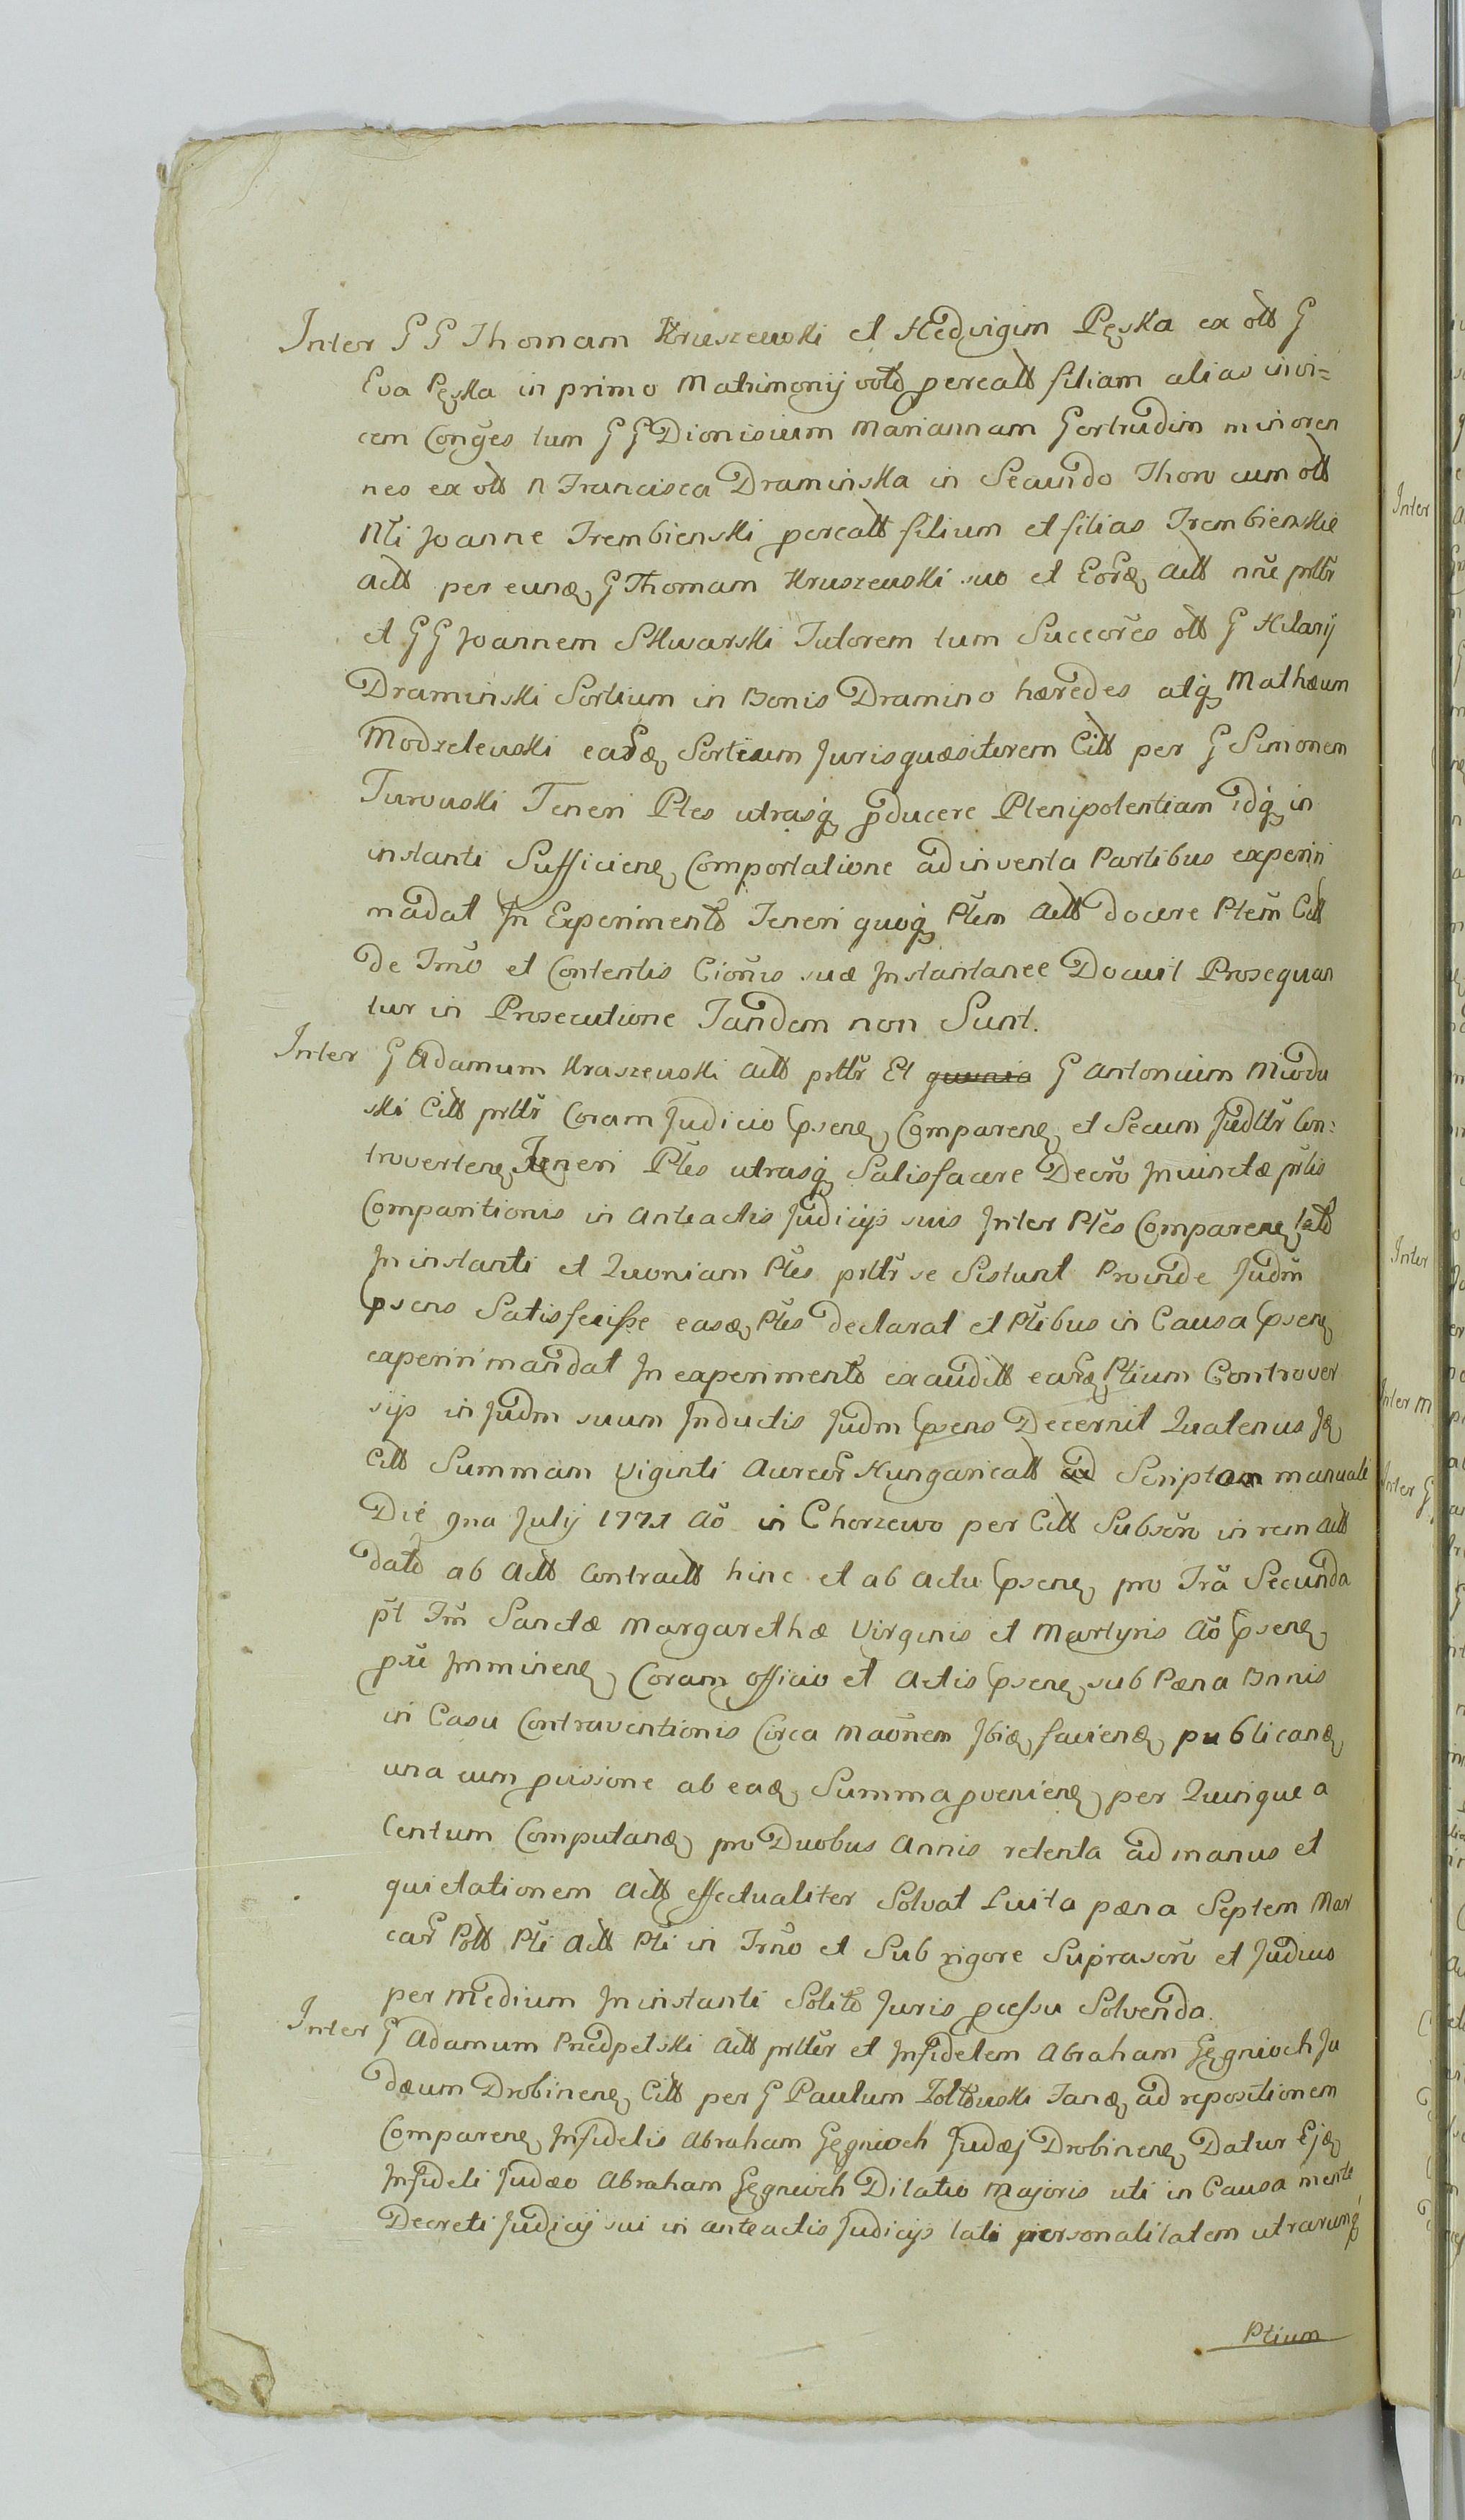 Inter G G Thomam Kruszewski et Hedvigim Pęska ex olt G
Eva Pęska in primo Matrimonij voto percatt filiam alias invi=
cem Conges tum G G Dionisium Mariannam Gertrudim minoren
nes ex olt N Francisca Draminska in Secundo Thoro cum olt
Nli Joanne Trembienski percatt filium et filias Trembienskie
Actt per eund G Thomam Kruszewski suo et Eord Actt nne prttr
et G G Joannem Skwarski Tutorem tum Succores olt G Hilarij
Draminski Sortium in Bonis Dramino hæredes atq Mathæum
Modzelewski eard Sortium Jurisquæsitorem Citt per G Simonem
Turowski Teneri Ptes utrasq pducere Plenipotentiam idq in
instanti Sufficien Comportatione adinventa Partibus experiri
madat In Experimento Teneri quoq Ptem Actt docere Ptem Citt
de Trno et Contentis Cionis suæ Instantanee Docuit Prosequan
tur in Prosecutione Tandem non Sunt.
Inter G Adamum Kraszewski Actt prttr Et G Antonium Miodu
ski Citt prttr Coram Judicio psen Comparen et Secum Judttr Con:
troverten Teneri Ptes utrasq Satisfacere Decro Injunctæ prlis
Comparitionis in anteactis Judicijs suis Inter Ptes Comparen lato
In instanti et Quoniam Ptes prttr se Sistunt Proinde Judm
psens Satisfecisse easd Ptes declarat et Ptibus in Causa psen
experiri mandat In experimento exauditt eard Ptium Controver
sijs in Judm suum Inductis Judm psens Decernit Quatenus Id
Citt Summam Viginti Aureor Hungaricalt Scriptam manuali
Die 9na Julij 1771 Ao in Chorzewo per Citt Subscro in rem Actt
dato ab Actt Contractt hinc et ab actu psen pro Fra Secunda
pt Fm Sanctæ Margarethæ Virginis et Martyris Ao psen
pxe Imminen Coram officio et Actis psen sub Pæna Bnnis
in Casu Contraventionis Circa Maonem Ibid faciend publicand
una cum pvisione ab ead Summa pvenien per Quinque a
Centum Computand pro Duobus Annis retenta ad manus et
quietationem Actt effectualiter Solvat Luita pæna Septem Mar
car Poltt Pti Actt Pti in Trno et Sub rigore Suprascro et Judius
per medium In instanti Solito Juris pcessu Solvenda.
Inter G Adamum Przedpelski Actt prttr et Infidelem Abraham Gęgnioch Ju
dæum Drobinen Citt per G Paulum Zoltowski Tand ad repositionem
Comparen Infidelis Abraham Gęgnioch Judæj Drobinen Datur Ejd
Infideli Judæo Abraham Gęgnioch Dilatio Majoris uti in Causa mente
Decreti Judicij sui in anteactis Judicijs lati personalitatem utrarunq
Ptium
Inter
Inter
Inter M
Inter G